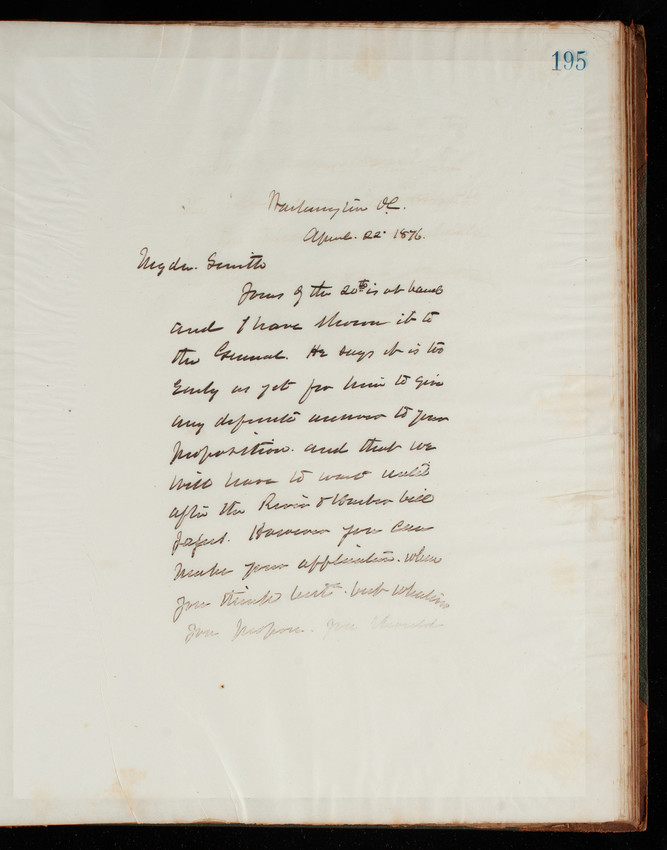 195
Washington D.C.
April. 22. 1876.
My dr. Smith
Yours of the 20th is at hand
and I have shown it to
the General. He says it is too
Early as yet for him to give
any definite answer to your
proposition. and that we
will have to wait until
after the River & Harbor bill
However you can
make your application. when
you think best. but
you propose. you should